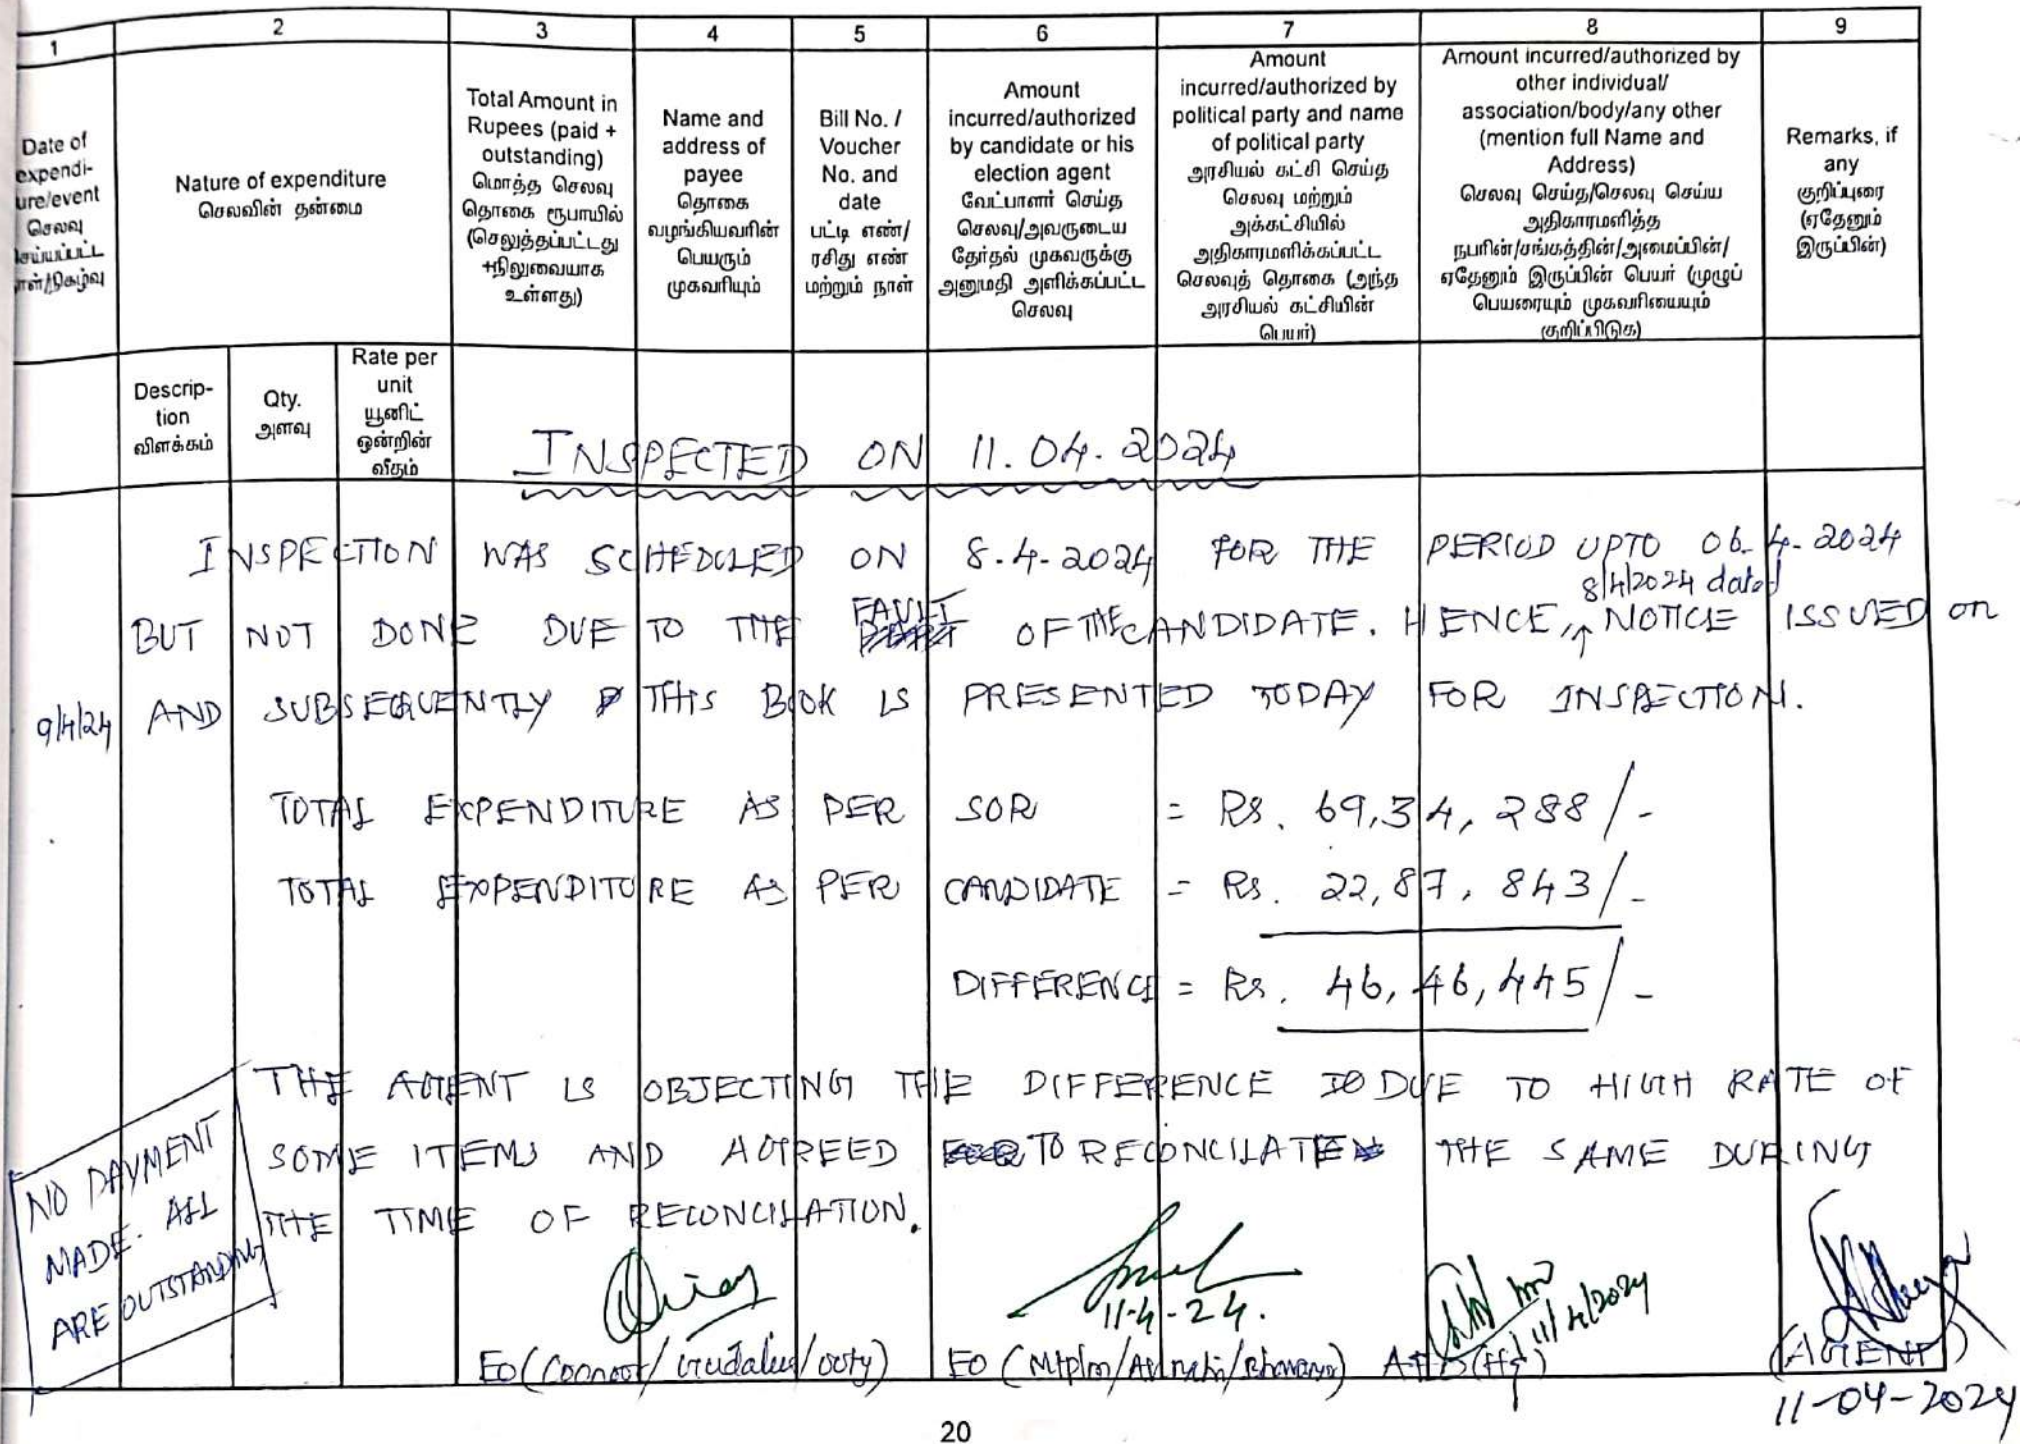 1 2 3 4 5 6 7 8 9
Date of
expendi-
ure/event
செலவு
செய்யப்பட்ட
நாள்/நிகழ்வு
Nature of expenditure
செலவின் தன்மை
Total Amount in
Rupees (paid +
outstanding)
மொத்த செலவு
தொகை ரூபாயில்
(செலுத்தப்பட்டது
+நிலுவையாக
உள்ளது)
Name and
address of
payee
தொகை
வழங்கியவரின்
பெயரும்
முகவரியும்
Bill No. /
Voucher
No. and
date
பட்டி எண்/
ரசிது எண்
மற்றும் நாள்
Amount
incurred/authorized
by candidate or his
election agent
வேட்பாளர் செய்த
செலவு/அவருடைய
தேர்தல் முகவருக்கு
அனுமதி அளிக்கப்பட்ட
செலவு
Amount
incurred/authorized by
political party and name
of political party
அரசியல் கட்சி செய்த
செலவு மற்றும்
அக்கட்சியில்
அதிகாரமளிக்கப்பட்ட
செலவுத் தொகை (அந்த
அரசியல் கட்சியின்
பெயர்)
Amount incurred/authorized by
other individual/
association/body/any other
(mention full Name and
Address)
செலவு செய்த/செலவு செய்ய
அதிகாரமளித்த
நபரின்/சங்கத்தின்/அமைப்பின்/
ஏதேனும் இருப்பின் பெயர் (முழுப்
பெயரையும் முகவரியையும்
குறிப்பிடுக)
Remarks, if
any
குறிப்புரை
(ஏதேனும்
இருப்பின்)
Descrip-
tion
விளக்கம்
Qty.
அளவு
Rate per
unit
யூனிட்
ஒன்றின்
வீதம்
INSPECTED ON 11.04.2024
INSPECTION WAS SCHEDULED ON 8.4-2024 FOR THE PERIOD UPTO 06.4.2024
8/4/2024 dated
BUT NOT DONE DUE TO THE FAULT OF THE CANDIDATE. HENCE, NOTICE ISSUED on
9/4/24 AND SUBSEQUENTLY THIS BOOK IS PRESENTED TODAY FOR INSPECTION.
TOTAL EXPENDITURE AS PER SOR = Rs. 69,34,288/-
TOTAL EXPENDITURE AS PER CANDIDATE = Rs. 22,87,843/-
DIFFERENCE = Rs. 46,46,445/-
THE AGENT IS OBJECTING THE DIFFERENCE DUE TO HIGH RATE OF
SOME ITEMS AND AGREED TO RECONCILATE THE SAME DURING
THE TIME OF RECONCILATION.
NO PAYMENT
MADE. ALL
ARE OUTSTANDING
11-4-24.
11/4/2024
EO (Coonoor/Gudalur/ooty) EO (Mtplm/Avinashi/Bhavani)
(AGENT)
11-04-2024
20